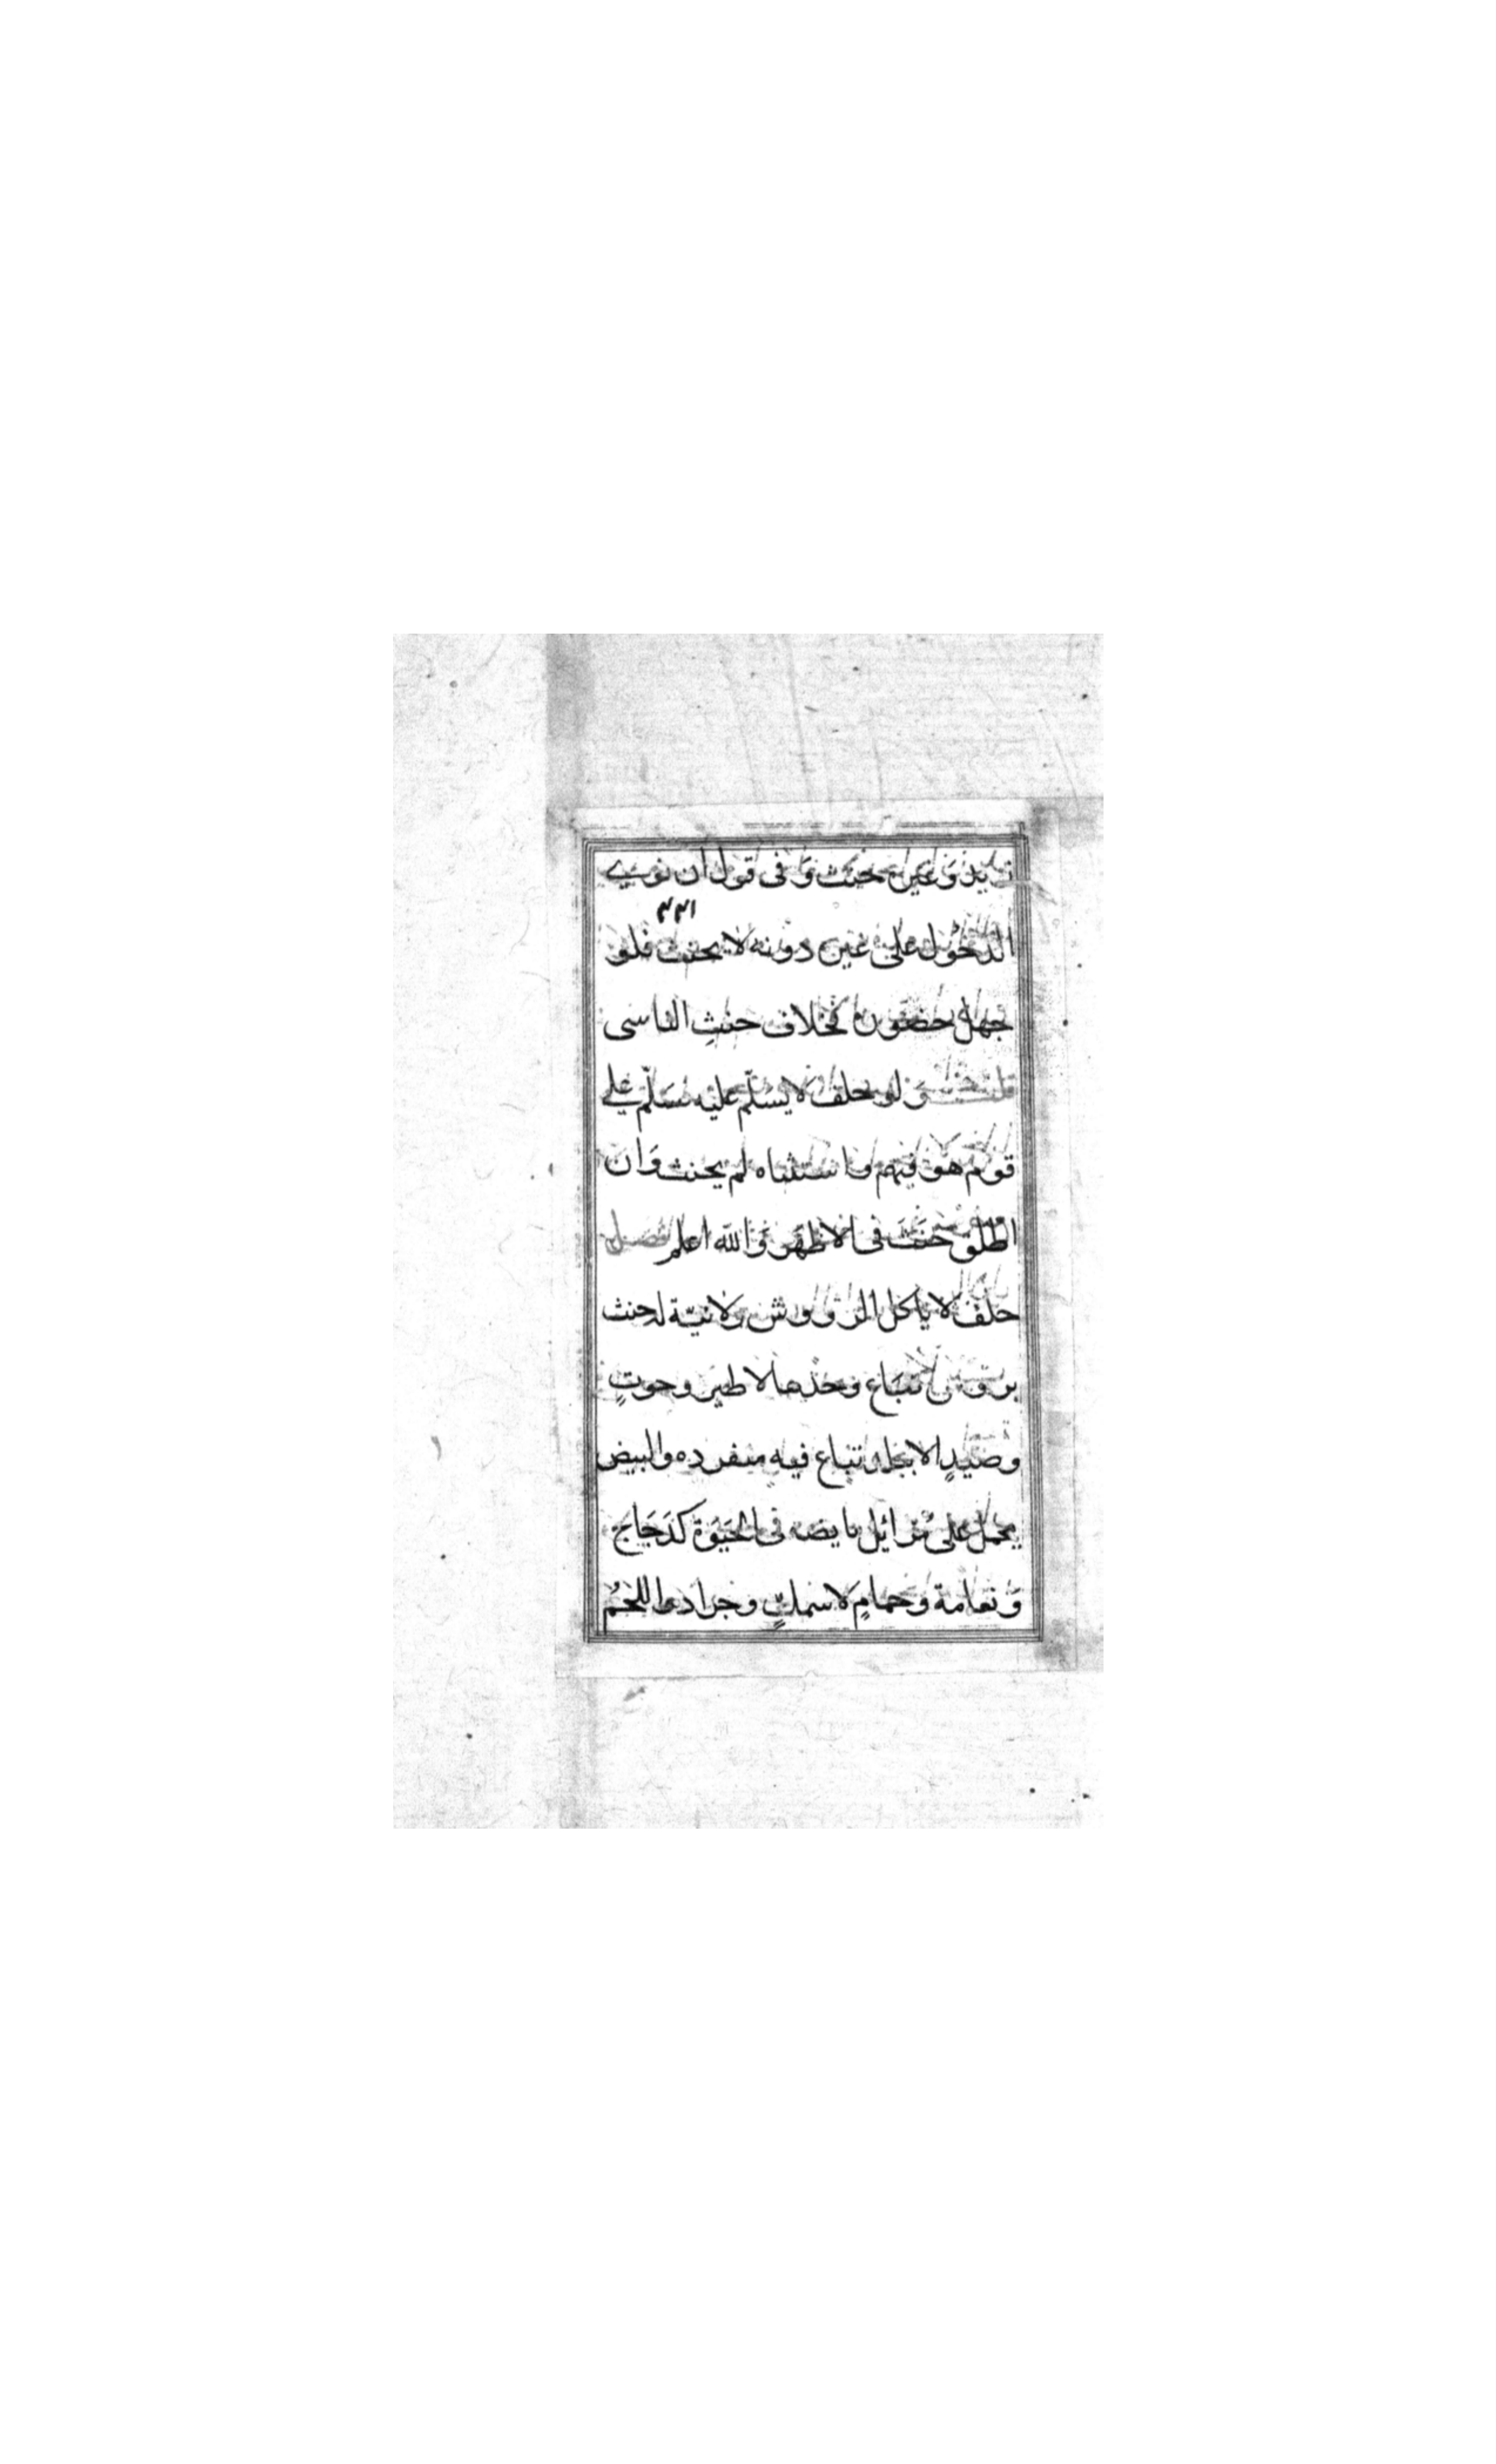 زيد وغيره حنث وفى قول ان نوى
الدخول على غيره دونه لا يحنث فلو
جهل حضوره فخلاف حنث الناسى
قلت ولو حلف لا يسلّم عليه فسلّم على
قوم هو فيهم واستثناه لم يحنث وان
اطلق حنث فى الاظهر والله اعلم فصل
حلف لا ياكل الرؤوس ولا نيّة له حنث
برؤس تباع وحدها لا طير وحوتٍ
وصيدٍ الا ببلد تباع فيه مفرده والبيض
يحمل على مزائيل بايضه فى الحيوة كدَجَاج
ونعامة وحمامٍ لا سمكٍ وجراد واللحمُ